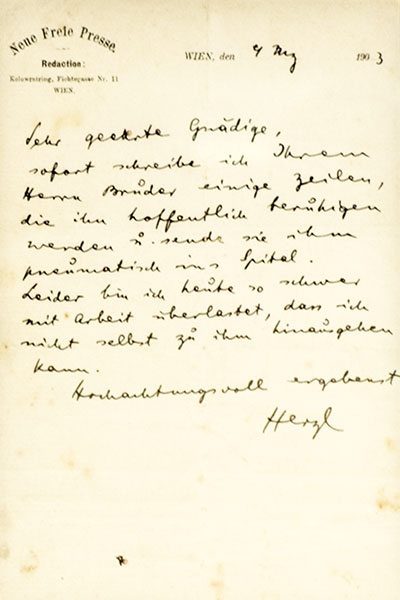 Neue Freie Presse.
Redaction:
Kolowratring, Fichtegasse Nr. 11
WIEN.
WIEN, den 4 Mz 1903
Sehr geehrte Gnädige,
sofort schreibe ich Ihrem
Herrn Bruder einige Zeilen,
die ihn hoffentlich beruhigen
werden u. sende sie ihm
pneumatisch ins Spital.
Leider bin ich heute so schwer
mit Arbeit überlastet, dass ich
nicht selbst zu ihm hinausgehen
kann.
Hochachtungsvoll ergebenst
Herzl